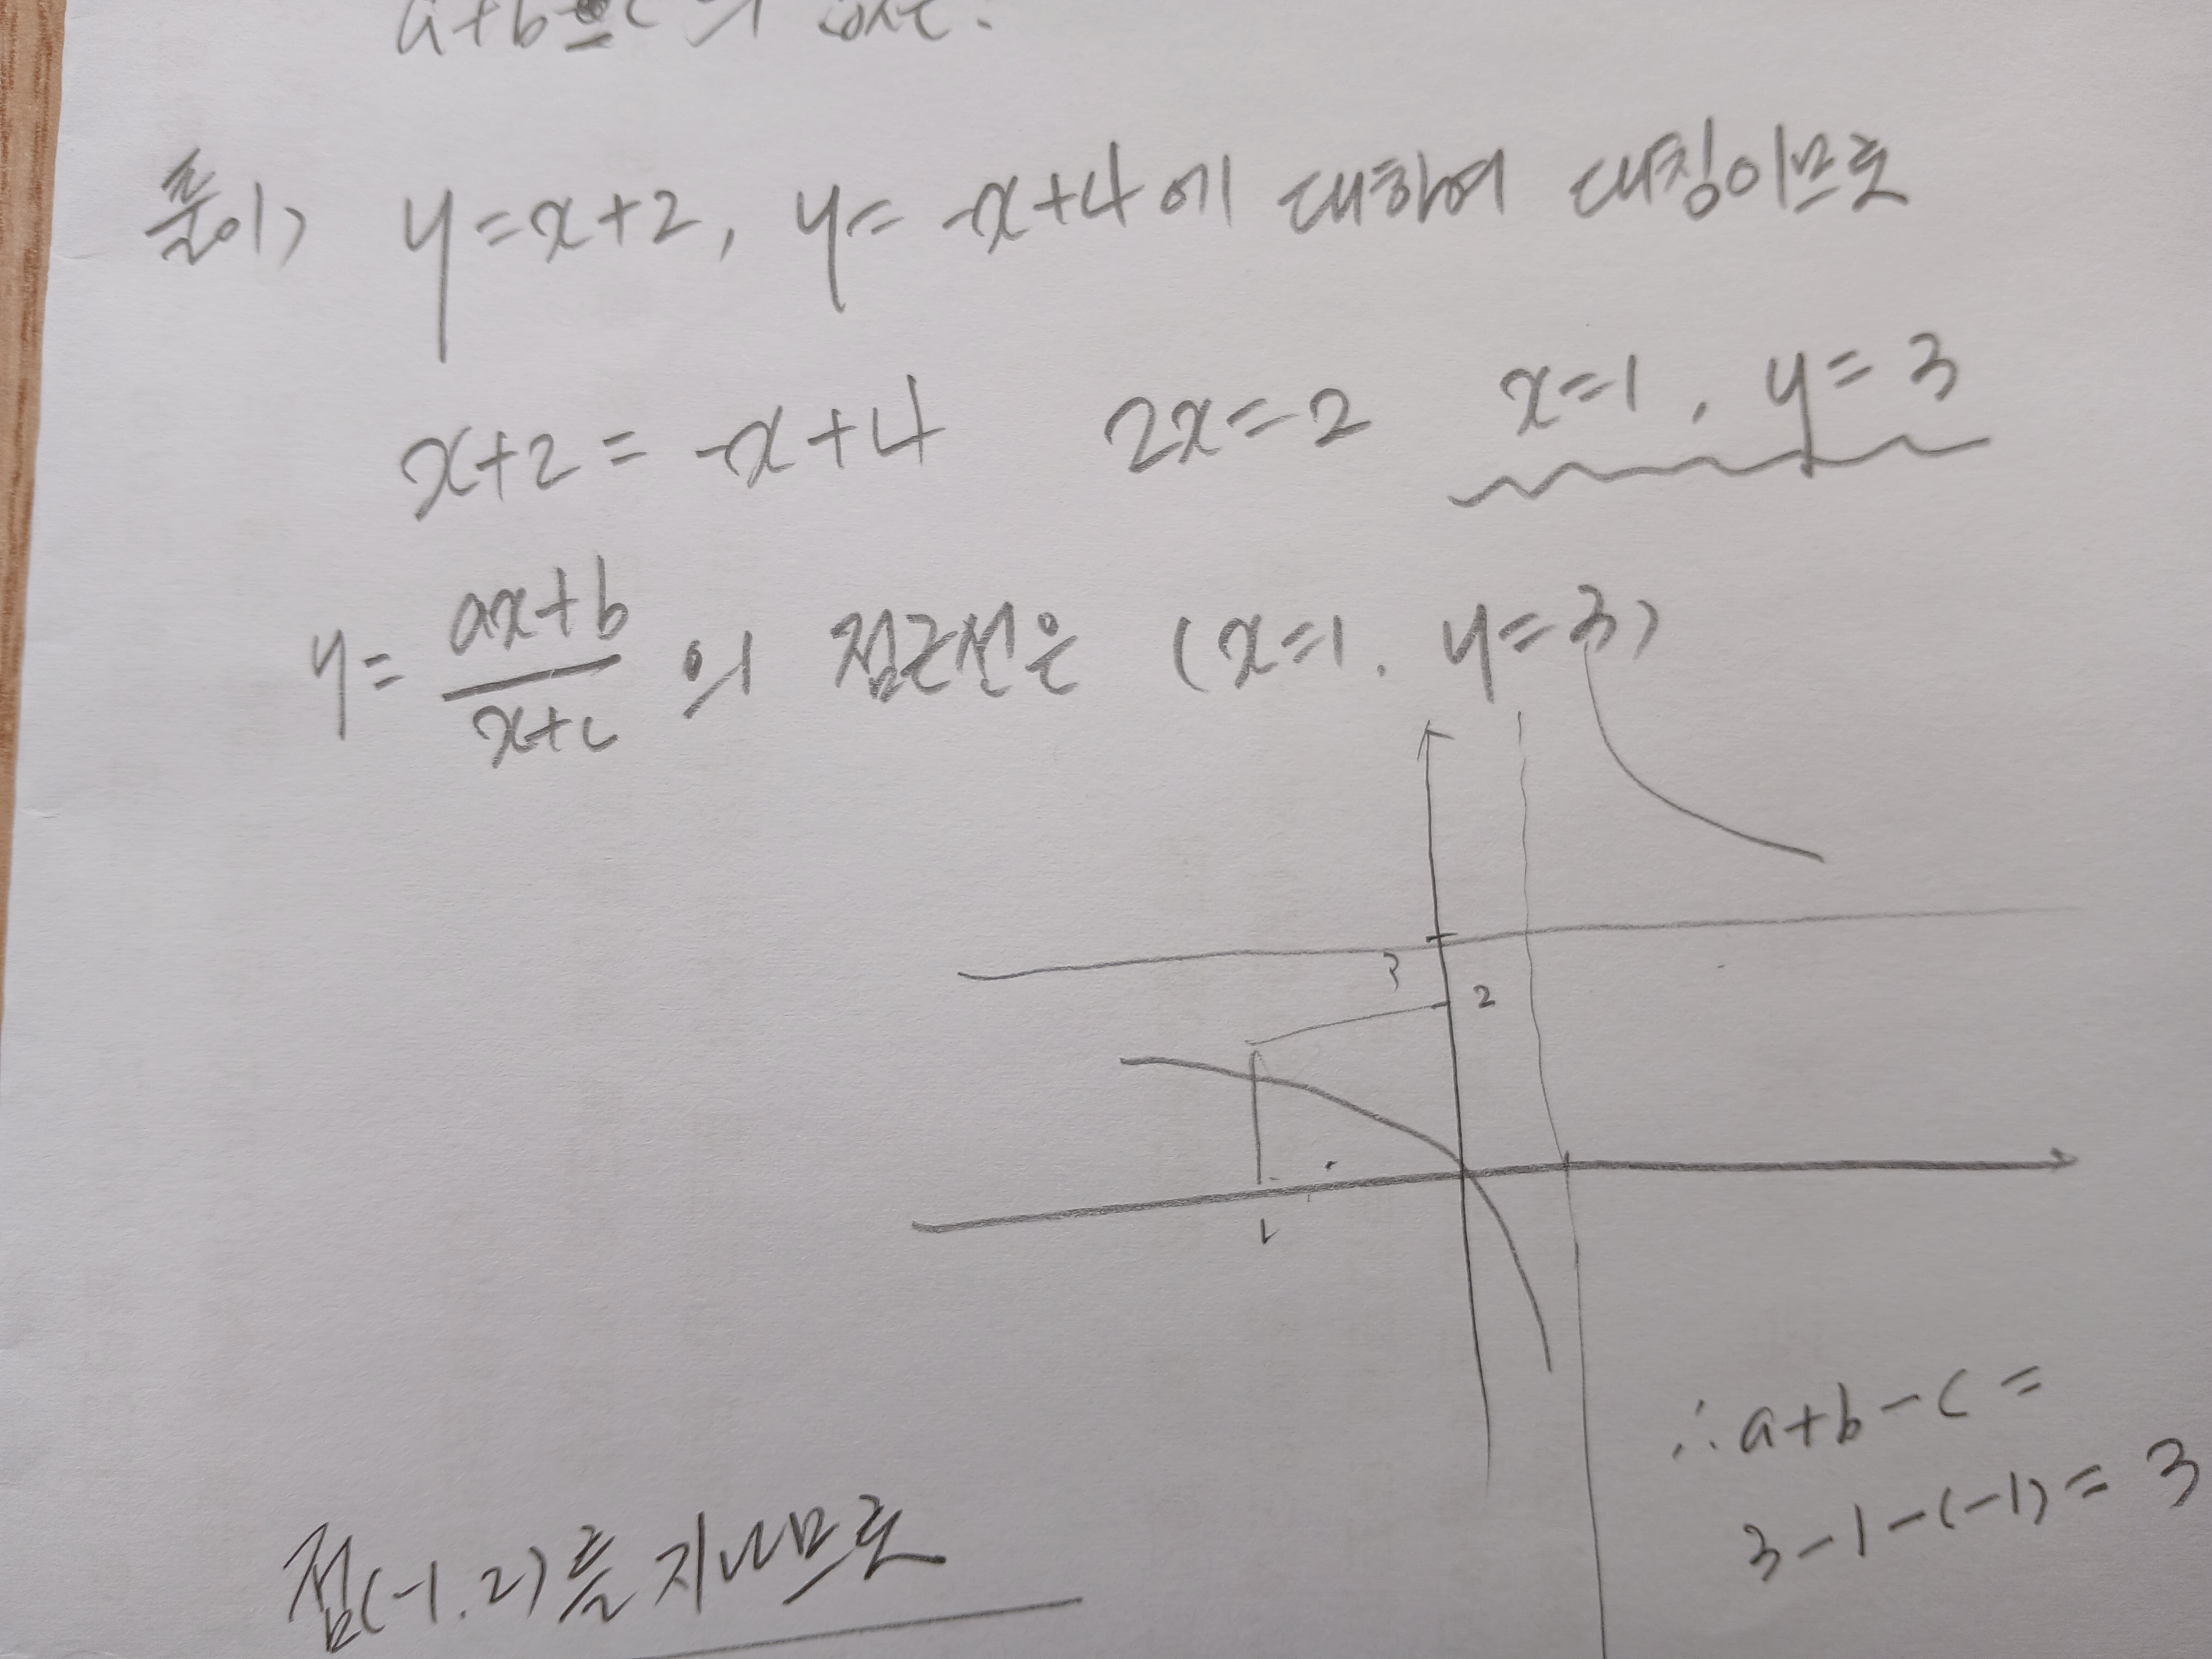 a+b-c의
풀이) y=x+2, y=-x+4에 대하여 대칭이므로
x+2=-x+4 2x=2 x=1, y=3
y=\frac{ax+b}{x+c}의 점근선은 (x=1. y=3)
3
2
1
∴a+b-c=
3-1-(-1)=3
점(-1.2)를 지나므로